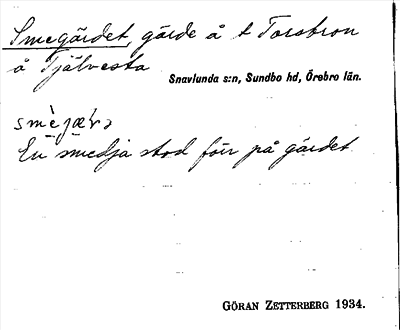 Smegärdet, gärde å t Torsbron
å Tjälvesta
Snavlunda s:n, Sundbo hd, Örebro län.
En smedja stod förr på gärdet
GÖRAN ZETTERBERG 1934.